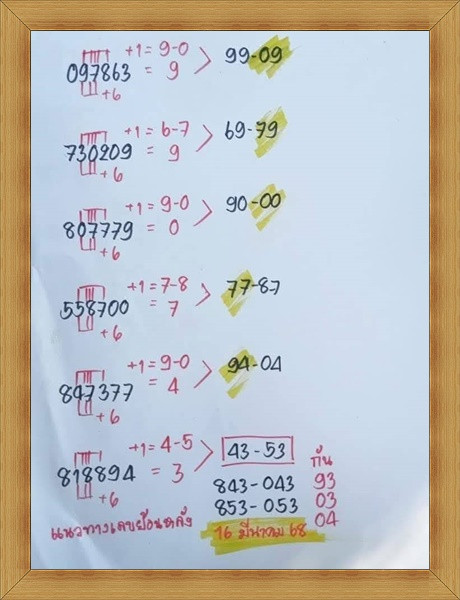 +1 = 9-0
097863 = 9 > 99-09
+6
+1 = 6-7
730209 = 9 > 69-79
+6
+1 = 9-0
807779 = 0 > 90-00
+6
+1 = 7-8
558700 = 7 > 77-87
+6
+1 = 9-0
847377 = 4 > 94-04
+6
+1 = 4-5
818894 = 3 > 43-53
+6
กัน
843-043 93
853-053 03
04
แนวทางเลขย้อนหลัง 16 มีนาคม 68